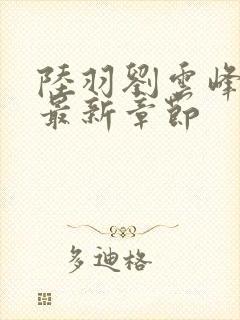 陸羽劉雲峰
最新章節
多迪格